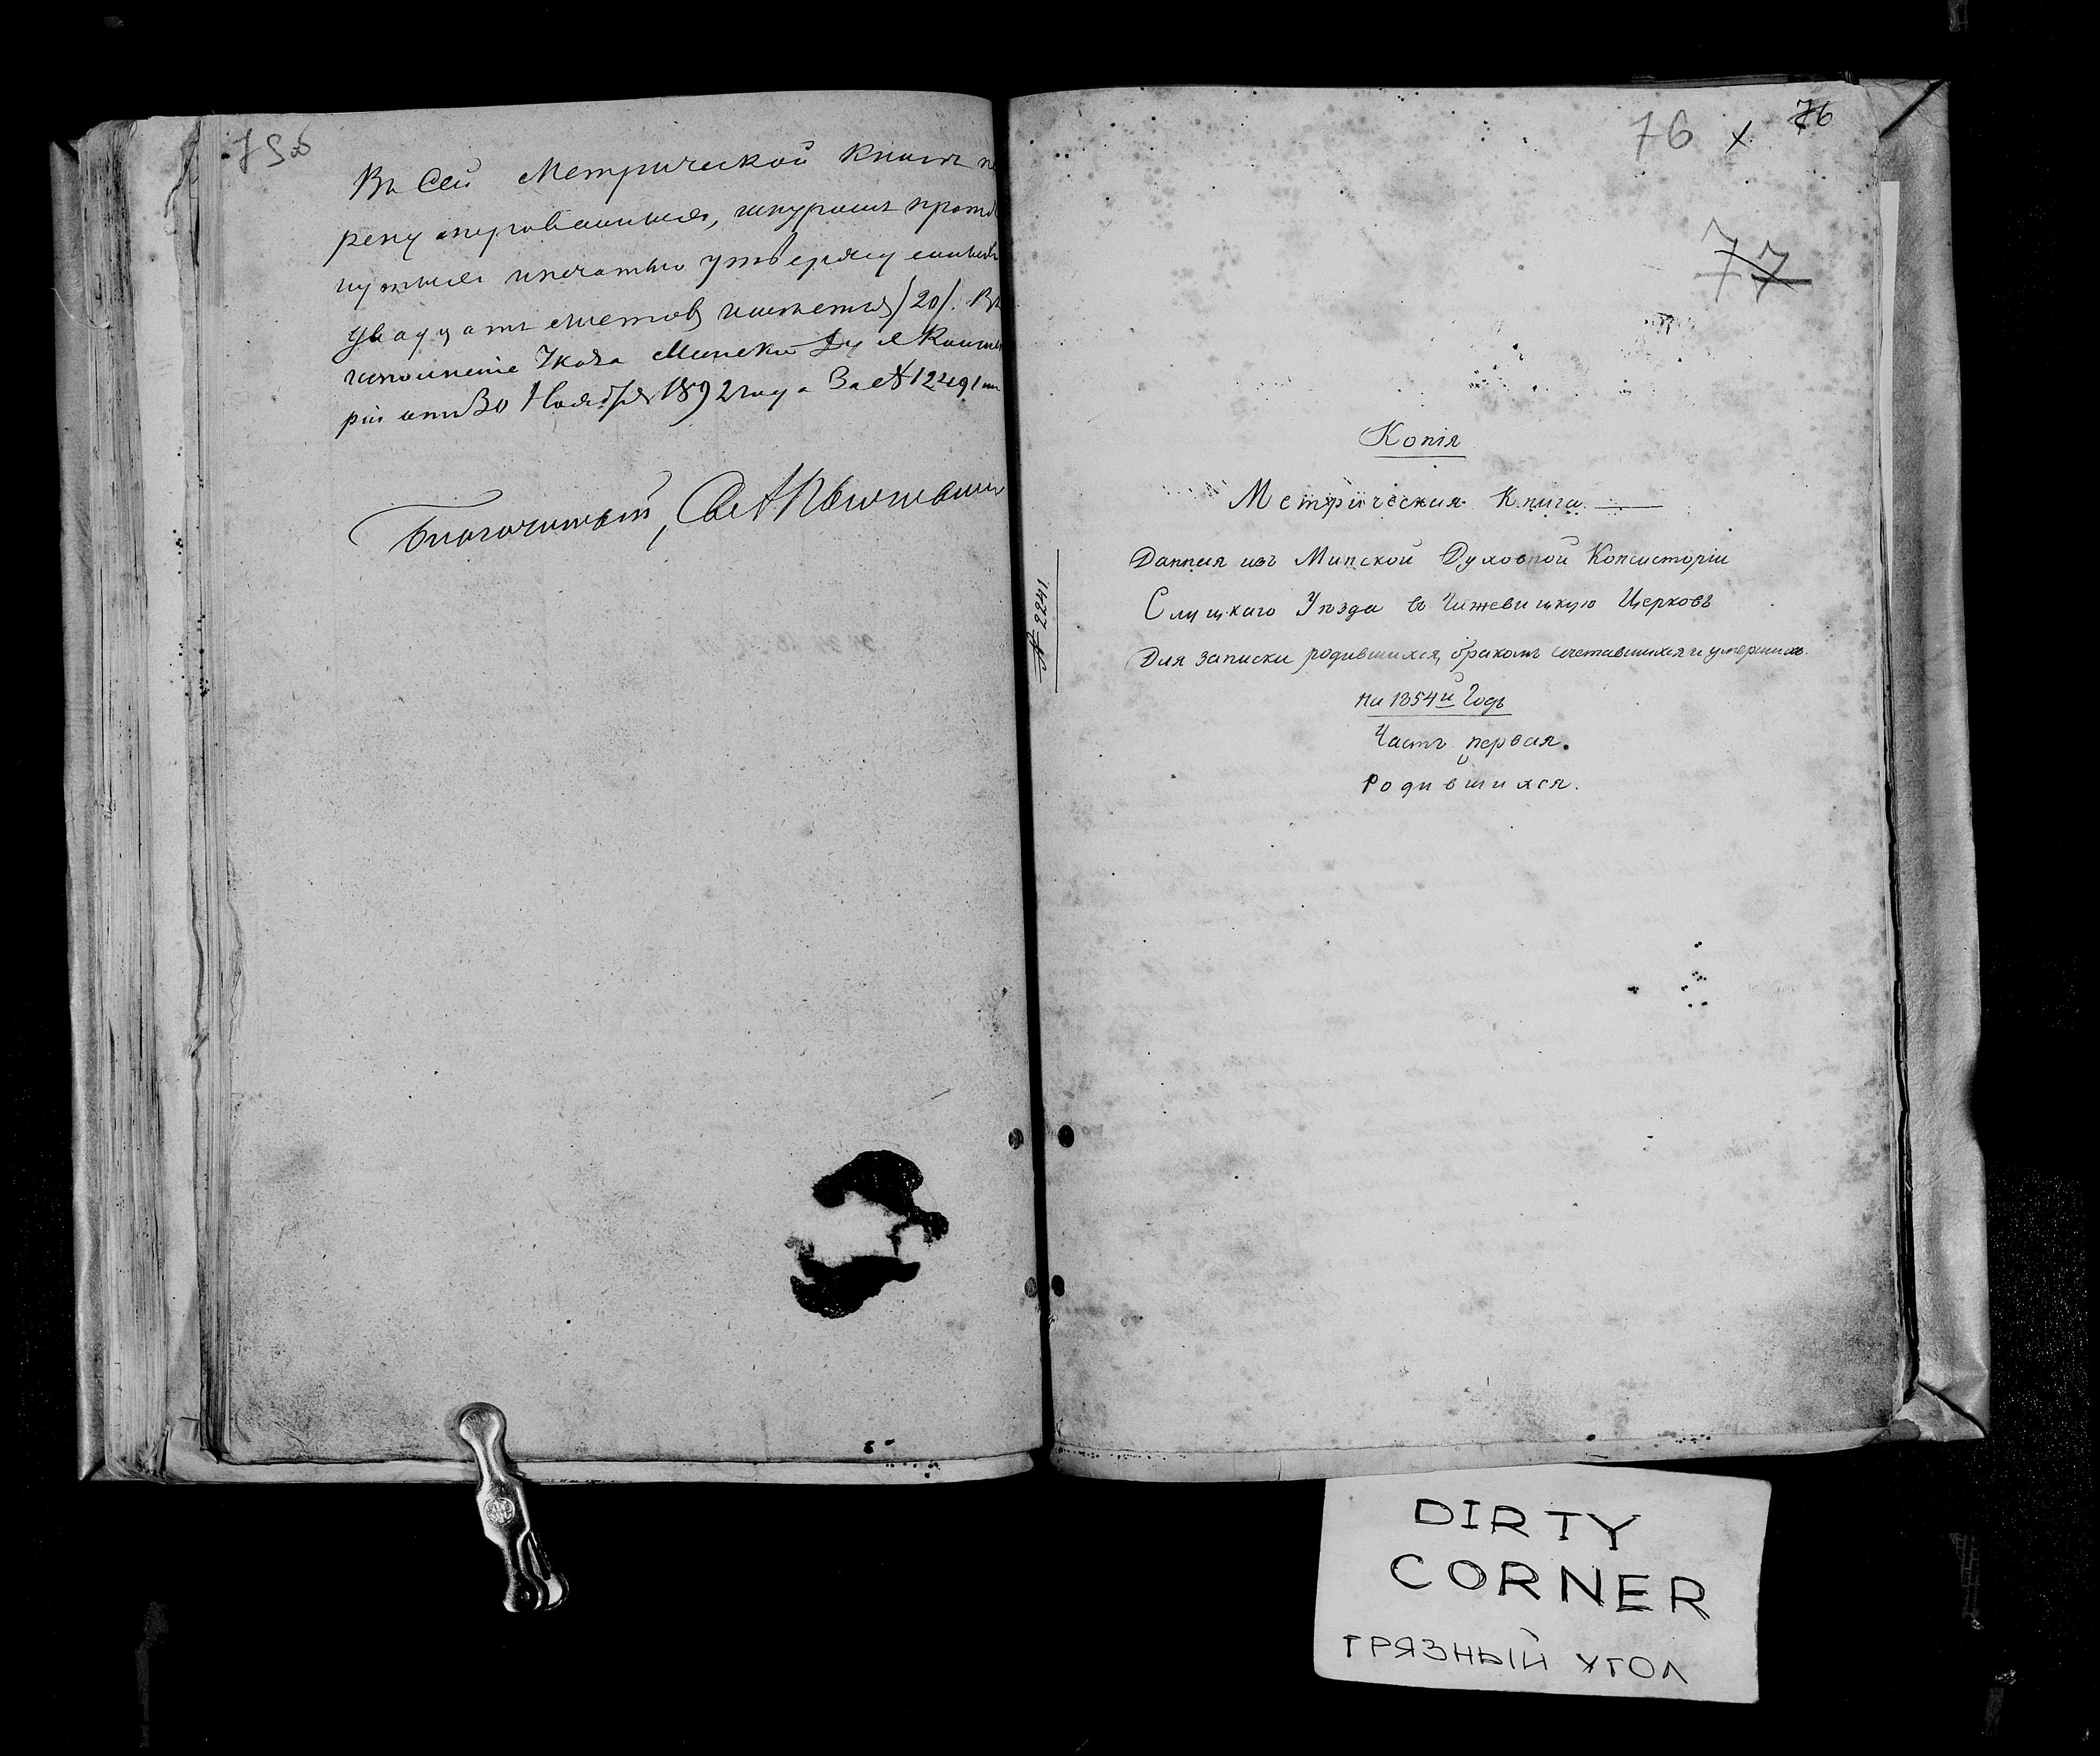 75об
Въ Сей Метрической Книгѣ
пронумерованныхъ, шнуромъ
печатью утверждено
двадцать листовъ имеется /20/. Въ
исполненіе Указа Минской Ду К
ріи отъ 30 Ноября 1892 года За №
Благочинный, Свящ
76 х 76
77
№ 2241
Копія
Метрическая Книга
Данная изъ Минской Духовной Консисторіи
Слуцкаго Уѣзда въ Чижевицкую Церковь
Для записки родившихся, бракомъ сочетавшихся и умершихъ.
На 1854й Годъ
Часть первая.
О
Родившихся.
DIRTY
CORNER
ГРЯЗНЫЙ УГОЛ